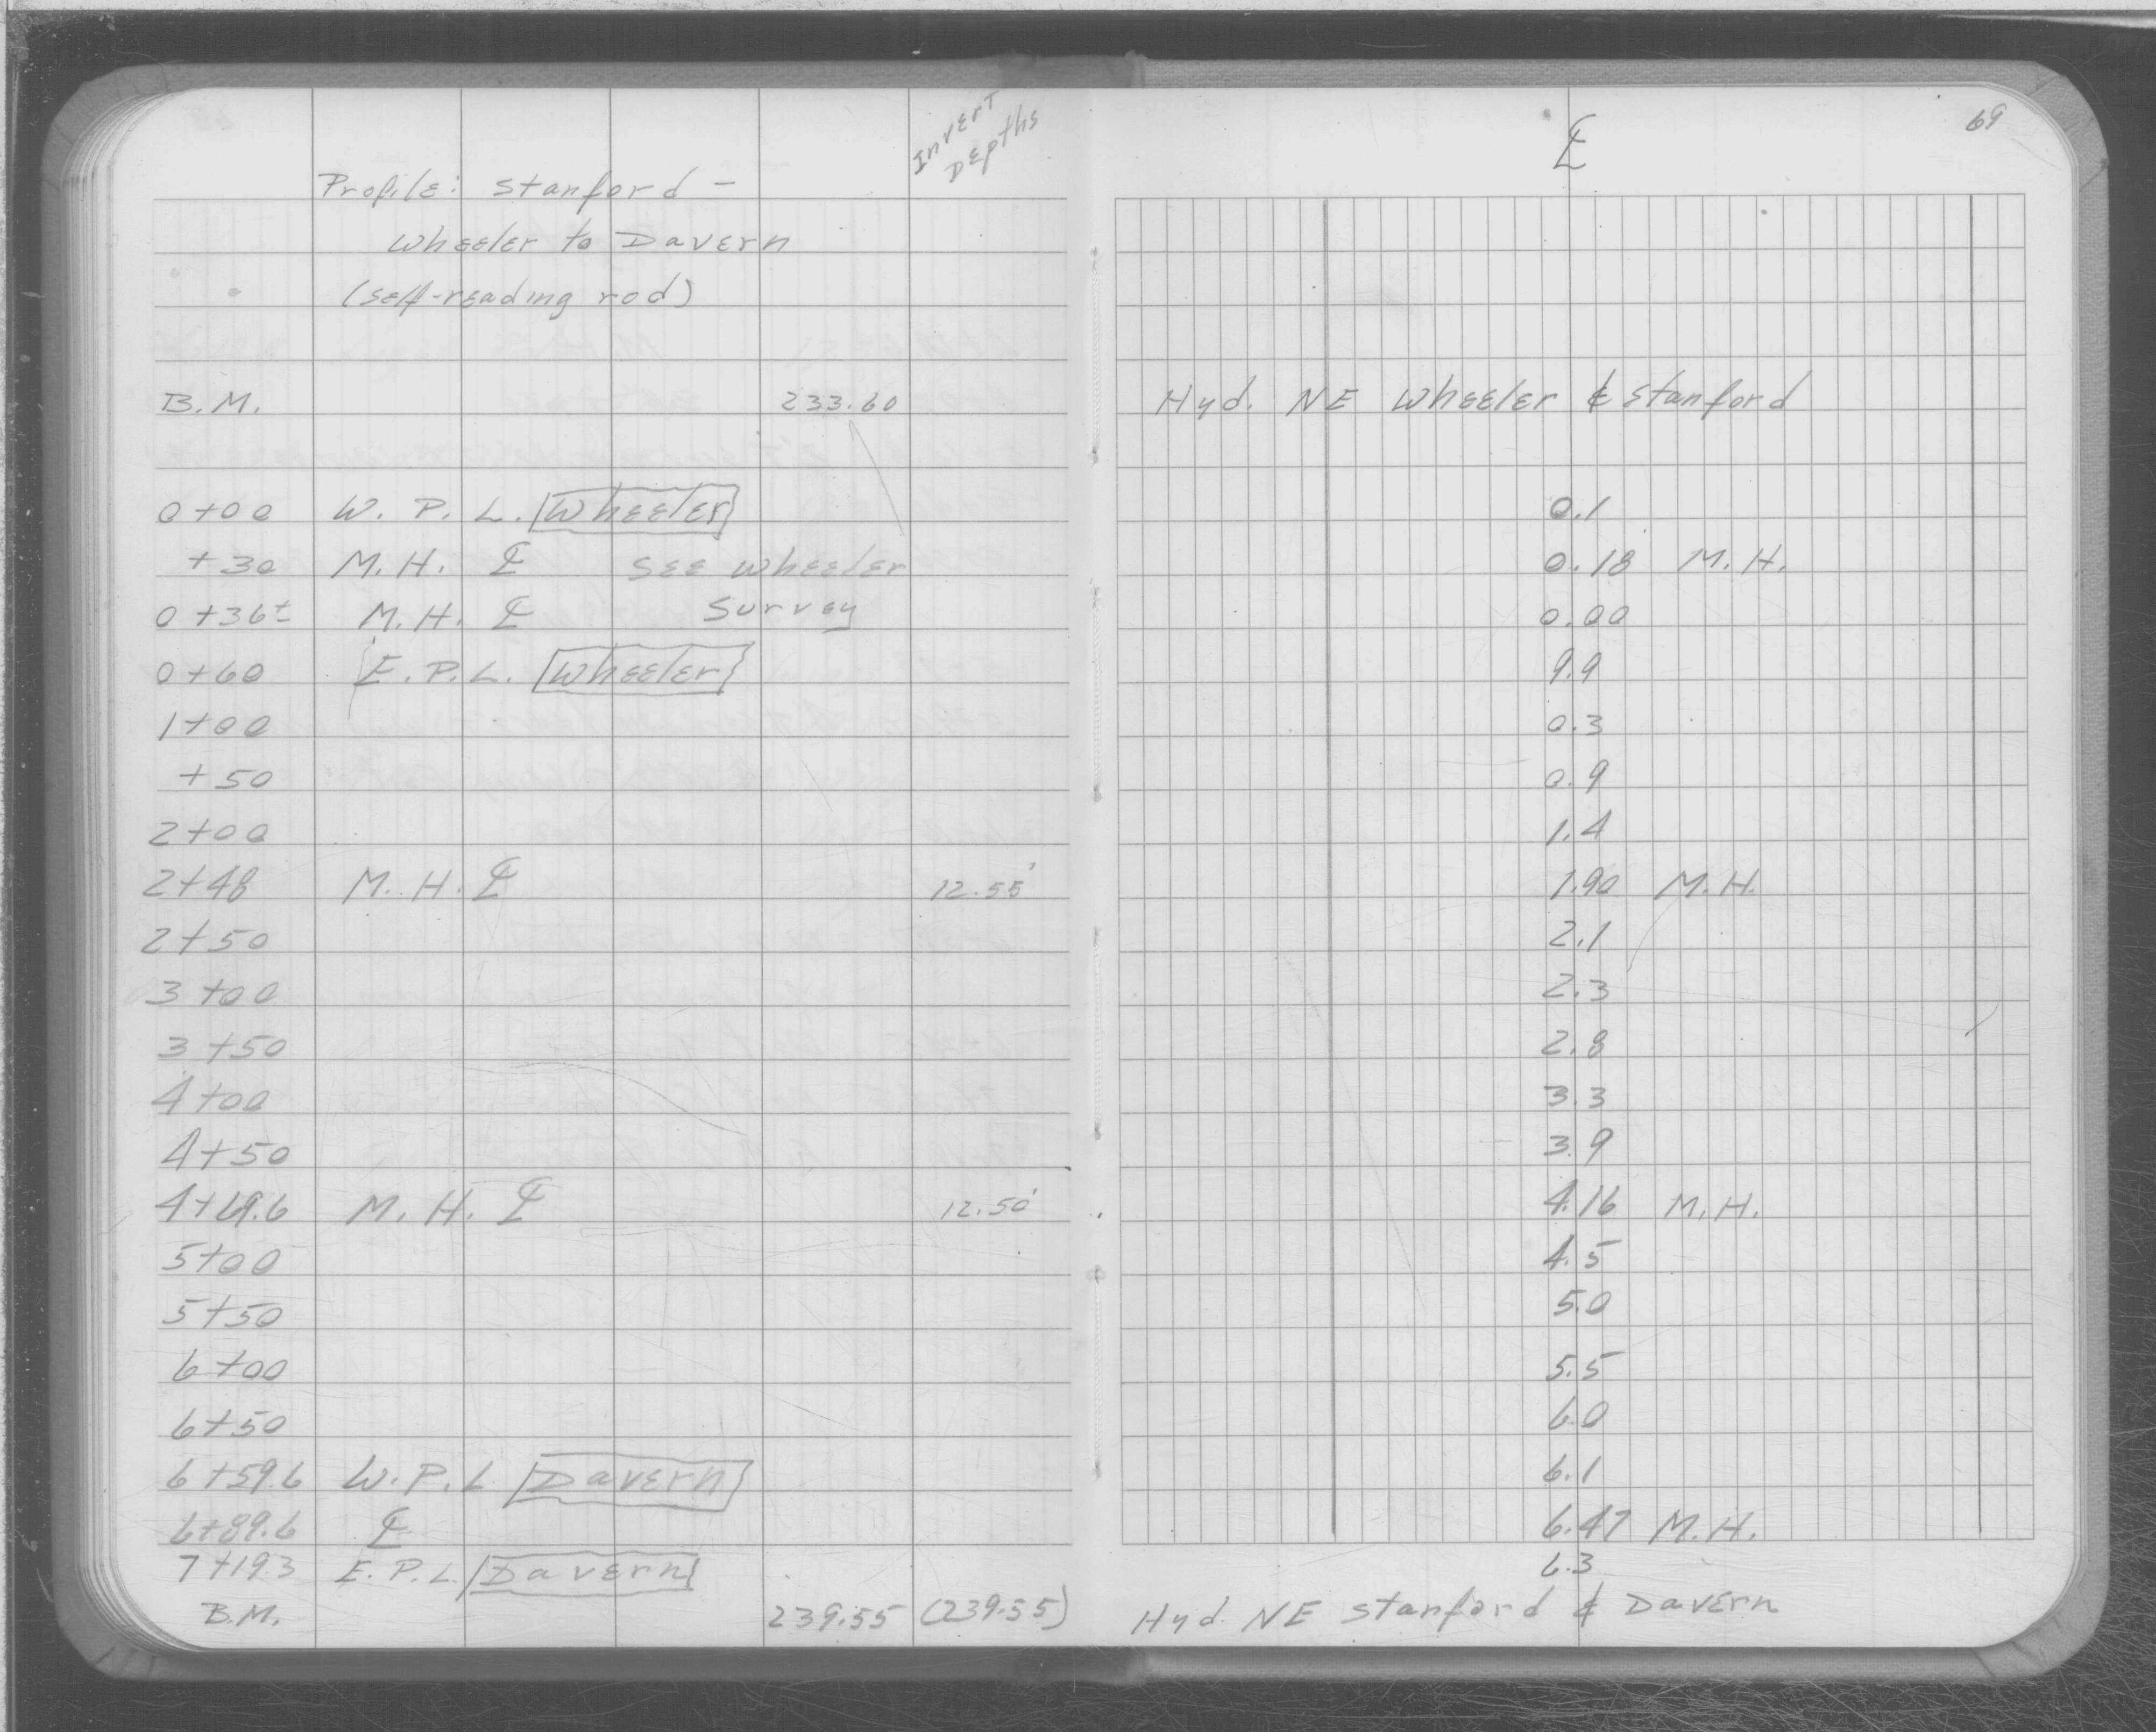 69
Invert
Depths
℄
Profile: Stanford -
Wheeler to Davern
(self-reading rod)
B.M. 233.60 Hyd. NE Wheeler & Stanford
0+00 W. P. L. Wheeler 0.1
+30 M. H. ℄ See Wheeler 0.18 M. H.
0+36± M. H. ℄ Survey 0.00
0+60 E. P. L. Wheeler 9.9
1+00 0.3
+50 0.9
2+00 1.4
2+48 M. H. ℄ 12.55' 1.90 M. H.
2+50 2.1
3+00 2.3
3+50 2.8
4+00 3.3
4+50 3.9
4+69.6 M. H. ℄ 12.50' 4.16 M. H.
5+00 4.5
5+50 5.0
6+00 5.5
6+50 6.0
6+59.6 W. P. L. Davern 6.1
6+89.6 ℄ 6.47 M. H.
7+19.3 E. P. L. Davern 6.3
B.M. 239.55 (239.55) Hyd. NE Stanford & Davern